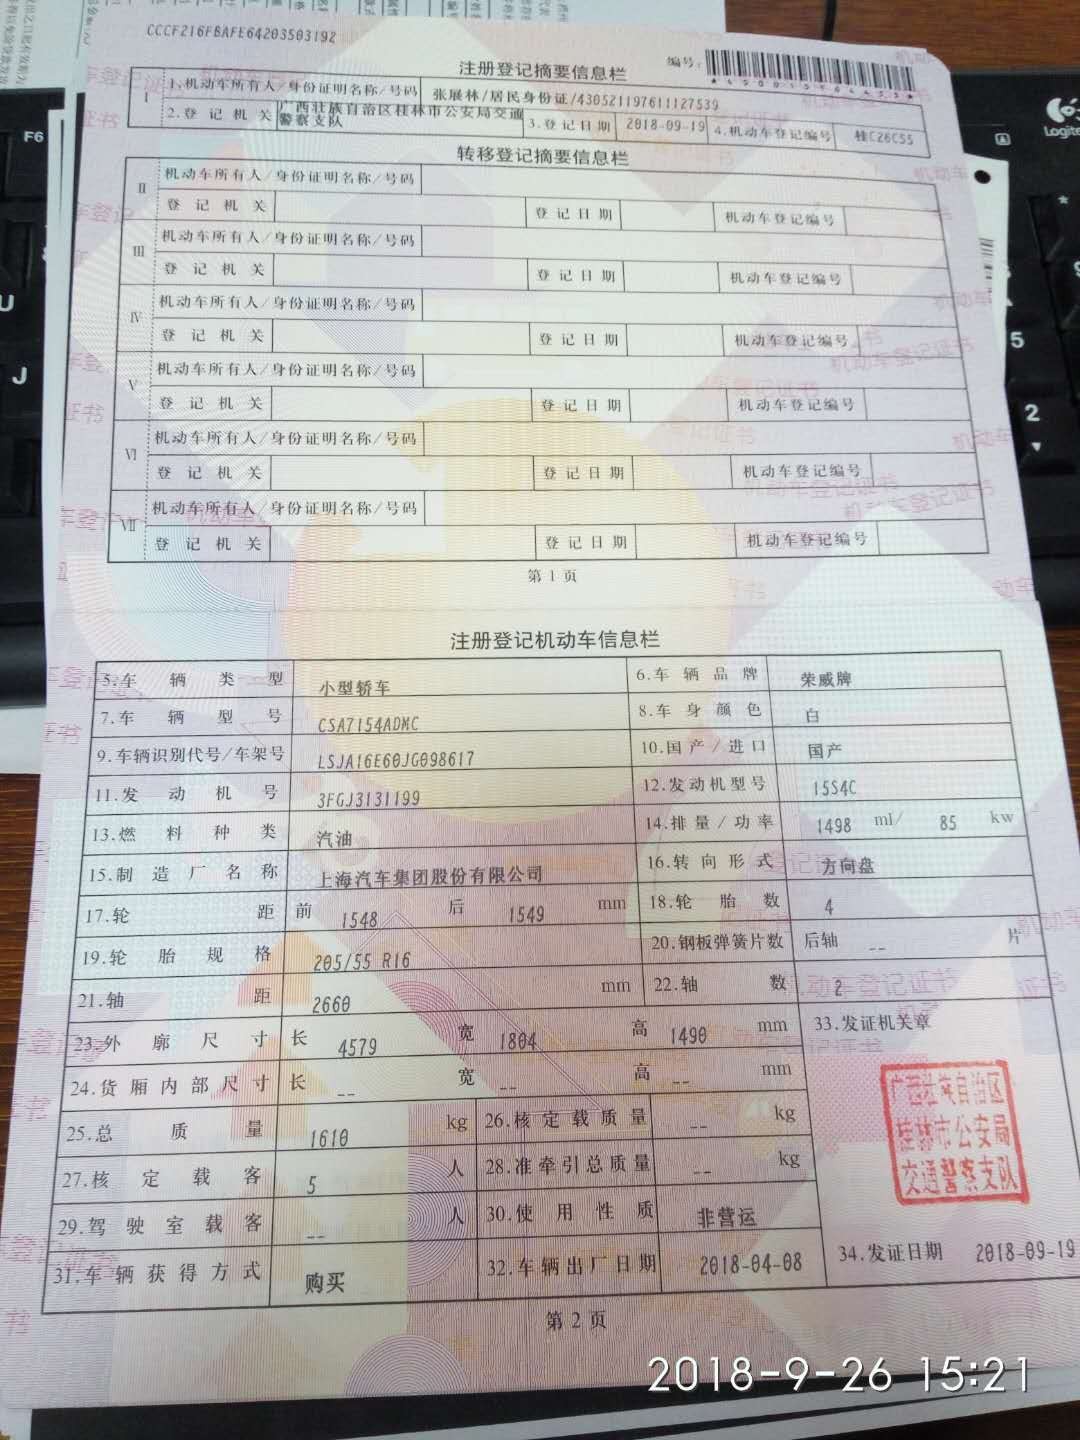 CCCF216FBAFE64203503192
注册登记摘要信息栏
编号:
Ⅰ
1.机动车所有人/身份证明名称/号码 张展林/居民身份证/430521197611127539
2.登记机关 广西壮族自治区桂林市公安局交通警察支队 3.登记日期 2018-09-19 4.机动车登记编号 桂C26C55
转移登记摘要信息栏
Ⅱ
机动车所有人/身份证明名称/号码
登记机关 登记日期 机动车登记编号
Ⅲ
机动车所有人/身份证明名称/号码
登记机关 登记日期 机动车登记编号
Ⅳ
机动车所有人/身份证明名称/号码
登记机关 登记日期 机动车登记编号
Ⅴ
机动车所有人/身份证明名称/号码
登记机关 登记日期 机动车登记编号
Ⅵ
机动车所有人/身份证明名称/号码
登记机关 登记日期 机动车登记编号
Ⅶ
机动车所有人/身份证明名称/号码
登记机关 登记日期 机动车登记编号
第1页
注册登记机动车信息栏
5.车辆类型 小型轿车 6.车辆品牌 荣威牌
7.车辆型号 CSA7154ADMC 8.车身颜色 白
9.车辆识别代号/车架号 LSJA16E60JG098617 10.国产/进口 国产
11.发动机号 3FGJ3131199 12.发动机型号 15S4C
13.燃料种类 汽油 14.排量/功率 1498 ml/ 85 kw
15.制造厂名称 上海汽车集团股份有限公司 16.转向形式 方向盘
17.轮距 前 1548 后 1549 mm 18.轮胎数 4
19.轮胎规格 205/55 R16 20.钢板弹簧片数 后轴 -- 片
21.轴距 2660 mm 22.轴数 2
23.外廓尺寸 长 4579 宽 1804 高 1490 mm 33.发证机关章
24.货厢内部尺寸 长 -- 宽 -- 高 -- mm
25.总质量 1610 kg 26.核定载质量 -- kg
广西壮族自治区
桂林市公安局
交通警察支队
27.核定载客 5 人 28.准牵引总质量 -- kg
29.驾驶室载客 -- 人 30.使用性质 非营运
31.车辆获得方式 购买 32.车辆出厂日期 2018-04-08 34.发证日期 2018-09-19
第2页
2018-9-26 15:21
F6
U
J
Logite
5
2